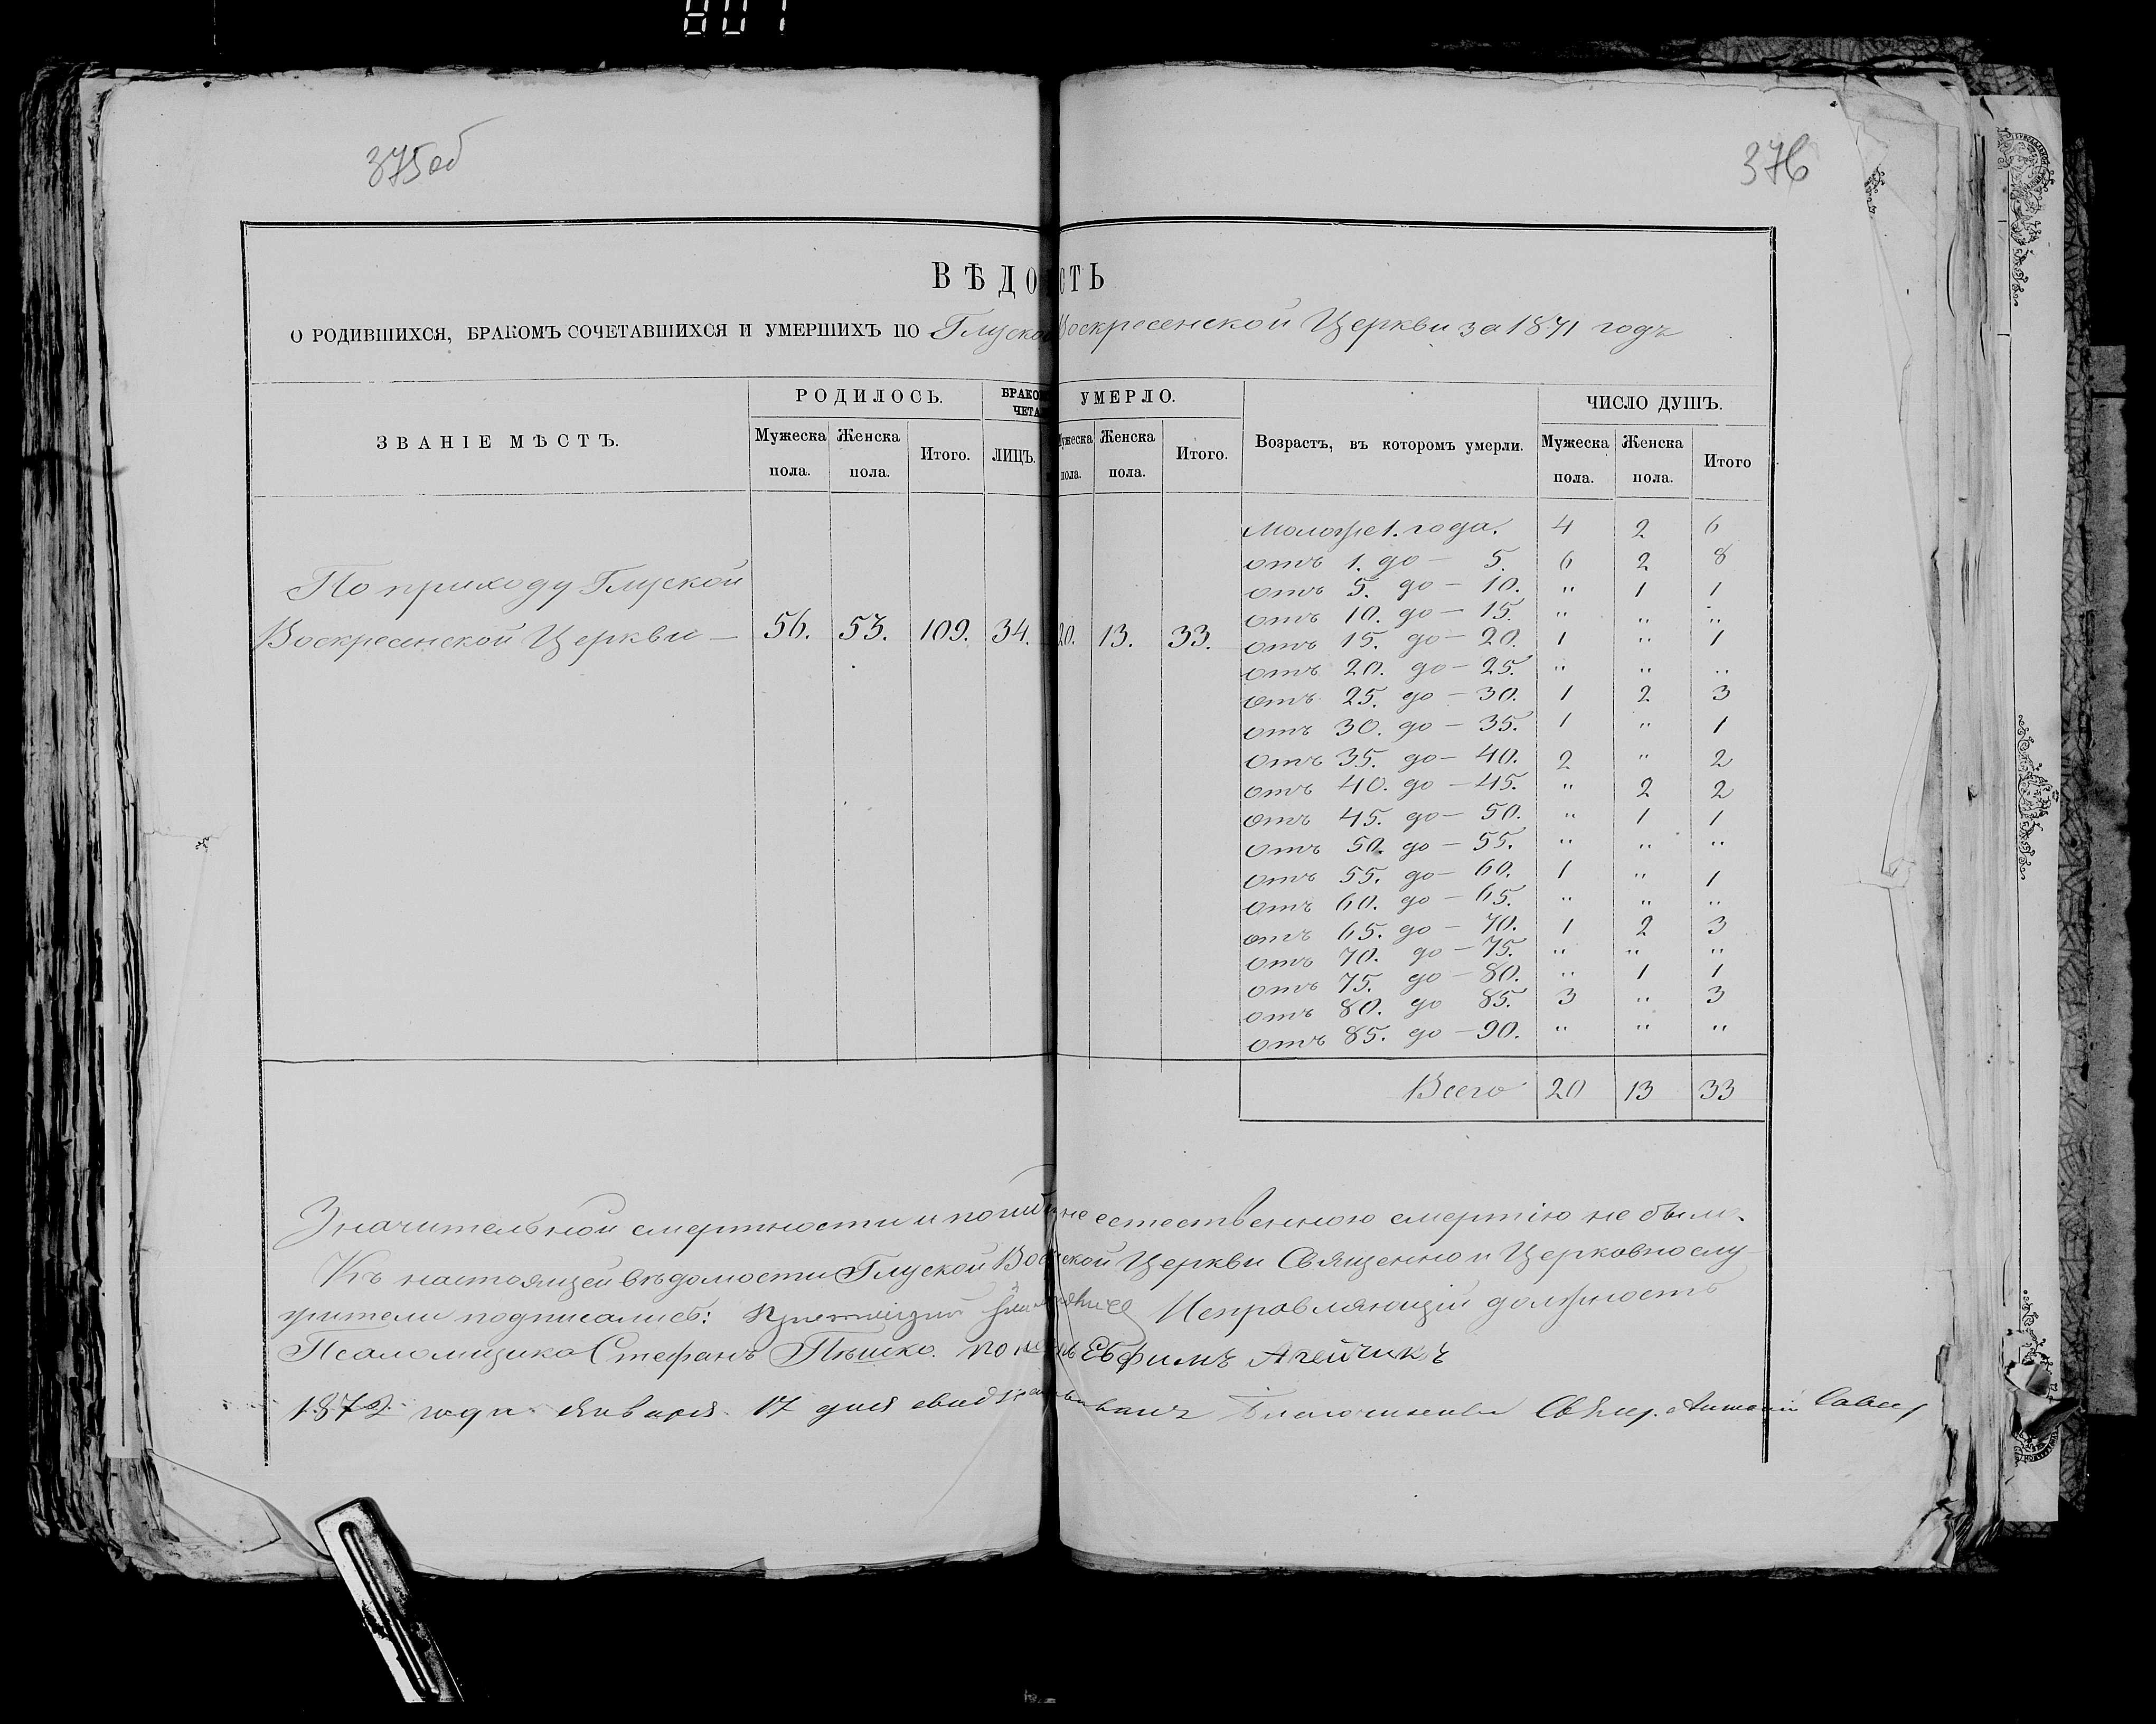 807
375об
376
ВѢДО СТЬ
О РОДИВШИХСЯ, БРАКОМЪ СОЧЕТАВШИХСЯ И УМЕРШИХЪ ПО Глуской Воскресенской Церкви за 1871 годъ
ЗВАНІЕ МѢСТЪ.
РОДИЛОСЬ.
Мужеска пола.
Женска пола.
Итого.
БРАКО
ЧЕТА
ЛИЦЪ.
УМЕРЛО.
Мужеска пола.
Женска пола.
Итого.
Возрастъ, въ которомъ умерли.
ЧИСЛО ДУШЪ.
Мужеска пола.
Женска пола.
Итого
По приходу Глуской
Воскресенской Церкви — 56. 53. 109. 34. 20. 13. 33.
Моложе 1. года. 4 2 6
отъ 1. до — 5. 6 2 8
отъ 5. до — 10. " 1 1
отъ 10. до — 15. " " "
отъ 15. до — 20. 1 " 1
отъ 20. до — 25. " " "
отъ 25. до — 30. 1 2 3
отъ 30. до — 35. 1 " 1
отъ 35. до — 40. 2 " 2
отъ 40. до — 45. " 2 2
отъ 45. до — 50. " 1 1
отъ 50. до — 55. " " "
отъ 55. до — 60. 1 " 1
отъ 60. до — 65. " " "
отъ 65. до — 70. 1 2 3
отъ 70. до — 75. " " "
отъ 75. до — 80. " 1 1
отъ 80. до 85. 3 " 3
отъ 85. до — 90. " " "
Всего 20 13 33
Значительной смертности и не естественною смертію не было.
Къ настоящей вѣдомости Глуской Церкви Священно и Церковнослу-
жители подписались: Исправляющій должность
Псаломщика Стефанъ Пѣшко. Евфимъ Агейчикъ
1872 года Января 17 дня